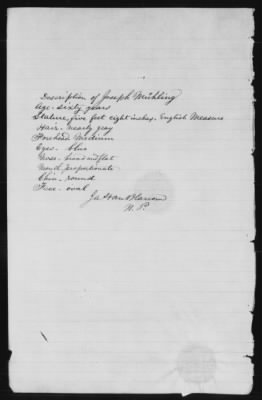 Description of Joseph Mühling
Age - sixty years
Stature, five feet eight inches, English Measure
Hair - nearly gray
Forehead Medium
Eyes - blue
Nose - broad and flat
Mouth, proportionate
Chin - round
Face - oval
N. P.